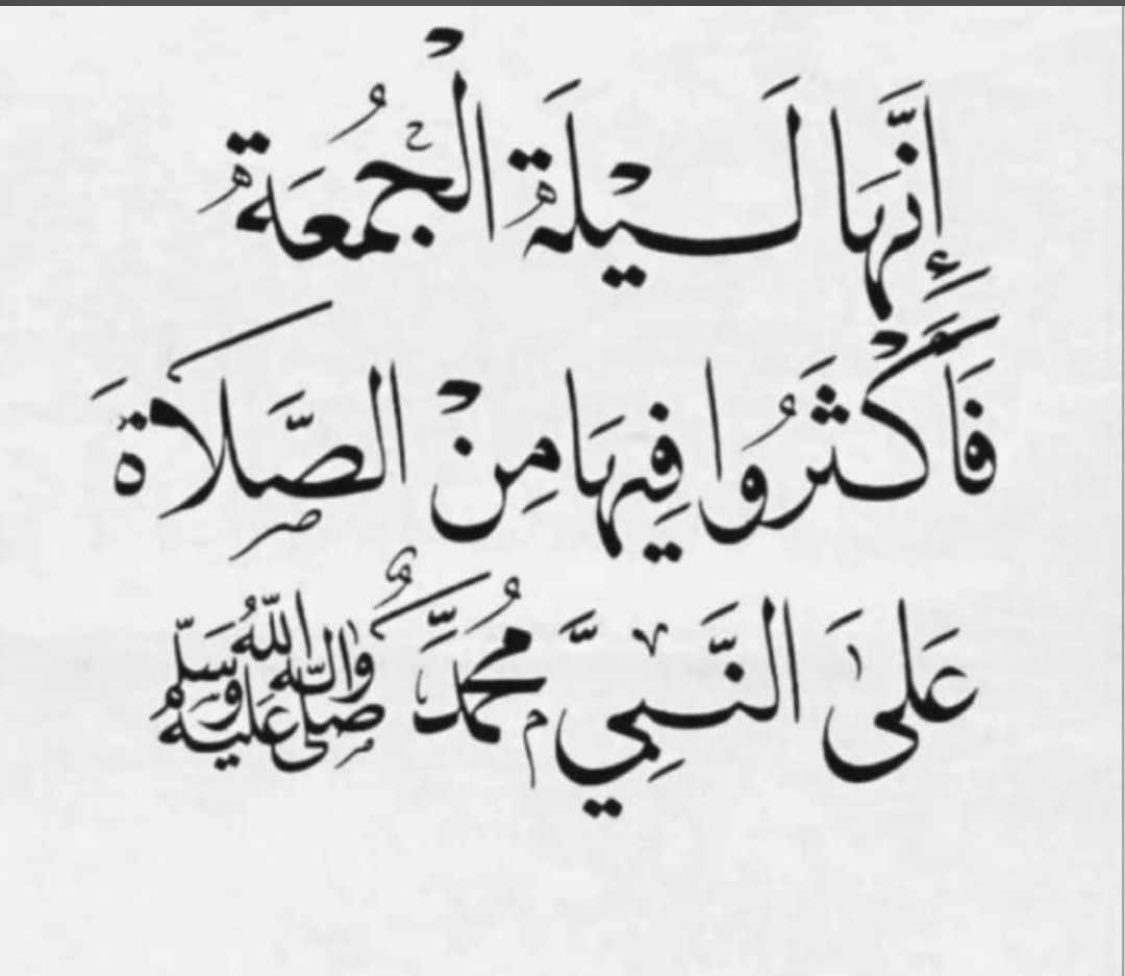 إِنَّهَا لَيْلَة الْجُمُعَة
فَأَكْثَرُوا فِيهَا مِنْ الصَّلَاةَ
عَلَىٰ النَّبِيَّ مُحَمَّد صلى الله عليه وآله وسلم